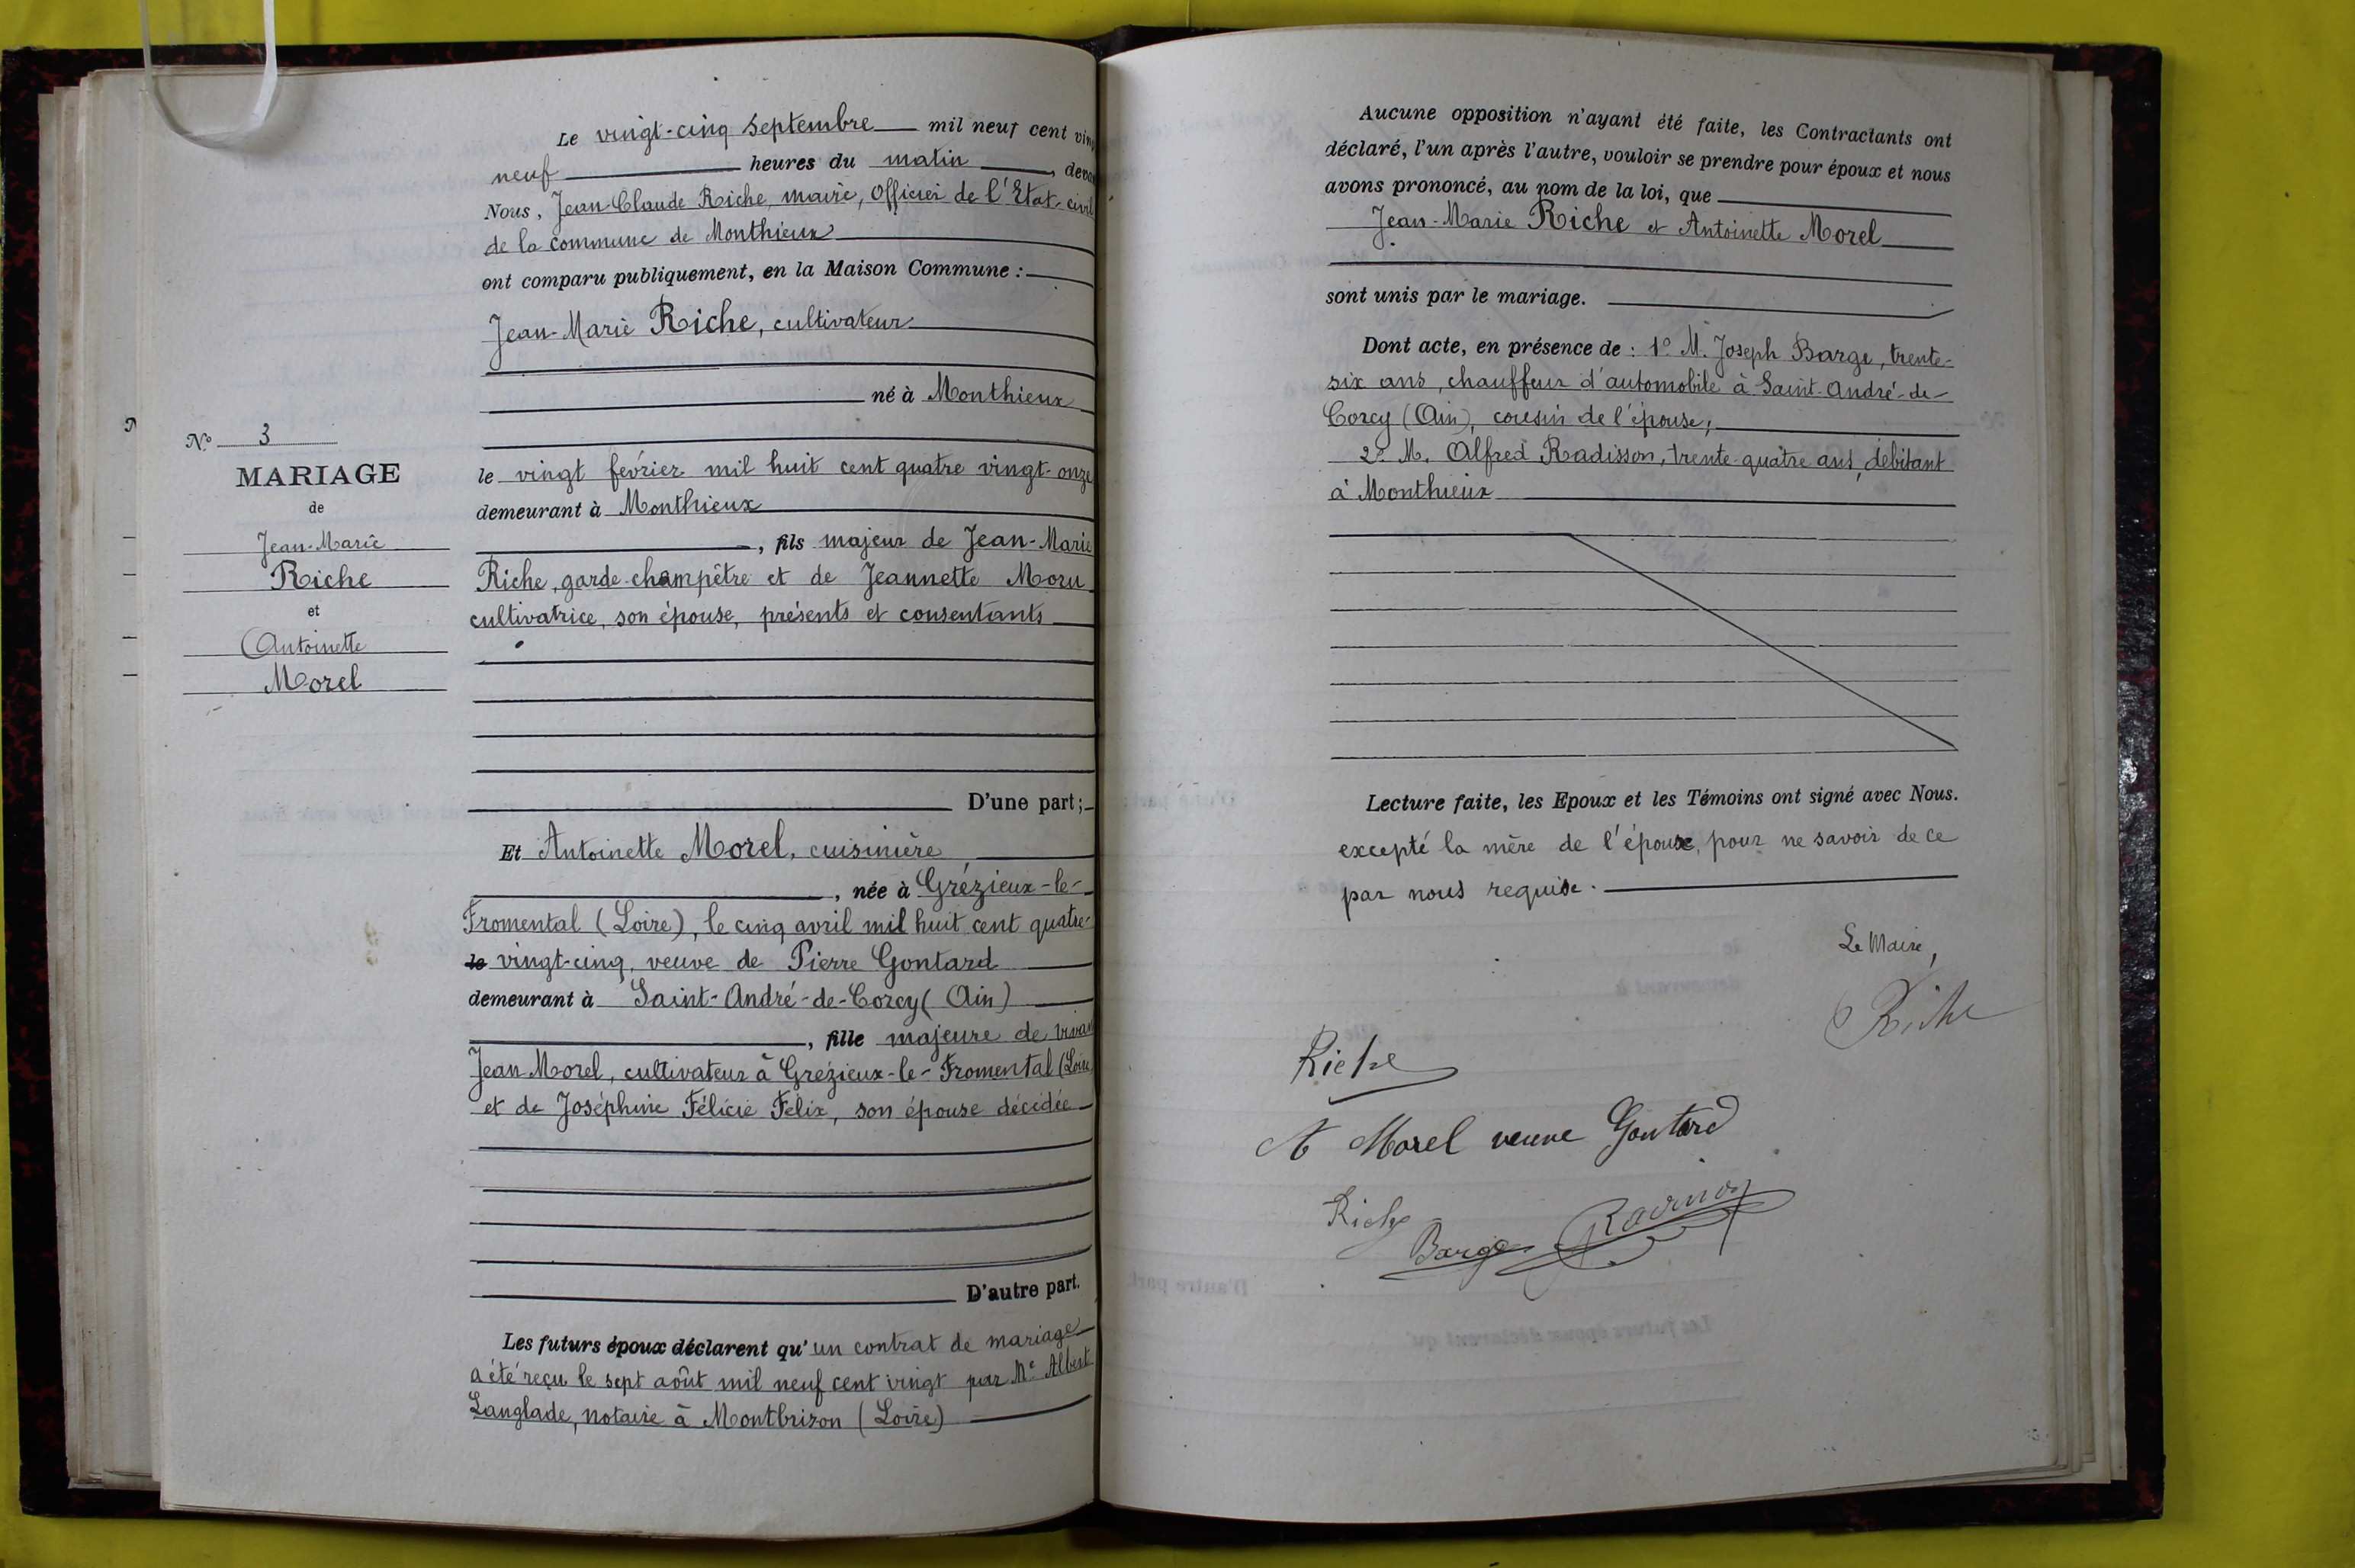 Le vingt-cinq septembre mil neuf cent vin
neuf heures du matin, deva
Nous, Jean-Claude Riche, maire, Officier de l'Etat-civil
de la commune de Monthieux
ont comparu publiquement, en la Maison Commune :
Jean-Marie Riche, cultivateur
né à Monthieux
le vingt février mil huit cent quatre vingt-onze
demeurant à Monthieux
, fils majeur de Jean-Marie
Riche, garde-champêtre et de Jeannette
cultivatrice, son épouse, présents et consentants
D'une part;
Et Antoinette Morel, cuisinière,
, née à Grézieux-le-
Fromental (Loire), le cinq avril mil huit cent quatre-
le vingt-cinq, veuve de Pierre Gontard
demeurant à Saint-André-de-Corcy (Ain)
, fille majeure de vivan
Jean Morel, cultivateur à Grézieux-le-Fromental (Loire
et de Joséphine Félicie Félix, son épouse décédée
D'autre part.
Les futurs époux déclarent qu'un contrat de mariage
a été reçu le sept août mil neuf cent vingt par Me Albert
Langlade, notaire à Montbrison (Loire)
N° 3
MARIAGE
de
Jean-Marie
Riche
et
Antoinette
Morel
Aucune opposition n'ayant été faite, les Contractants ont
déclaré, l'un après l'autre, vouloir se prendre pour époux et nous
avons prononcé, au nom de la loi, que
Jean-Marie Riche et Antoinette Morel
sont unis par le mariage.
Dont acte, en présence de : 1° M. Joseph Barge, trente-
six ans, chauffeur d'automobile à Saint-André-de-
Corcy (Ain), cousin de l'épouse;
2° M. Alfred Radisson, trente-quatre ans, débitant
à Monthieux
Lecture faite, les Epoux et les Témoins ont signé avec Nous.
excepté la mère de l'épouse, pour ne savoir de ce
par nous requise.
Le Maire,
Riche
Riche
A Morel veuve Gontard
Riche
Barge